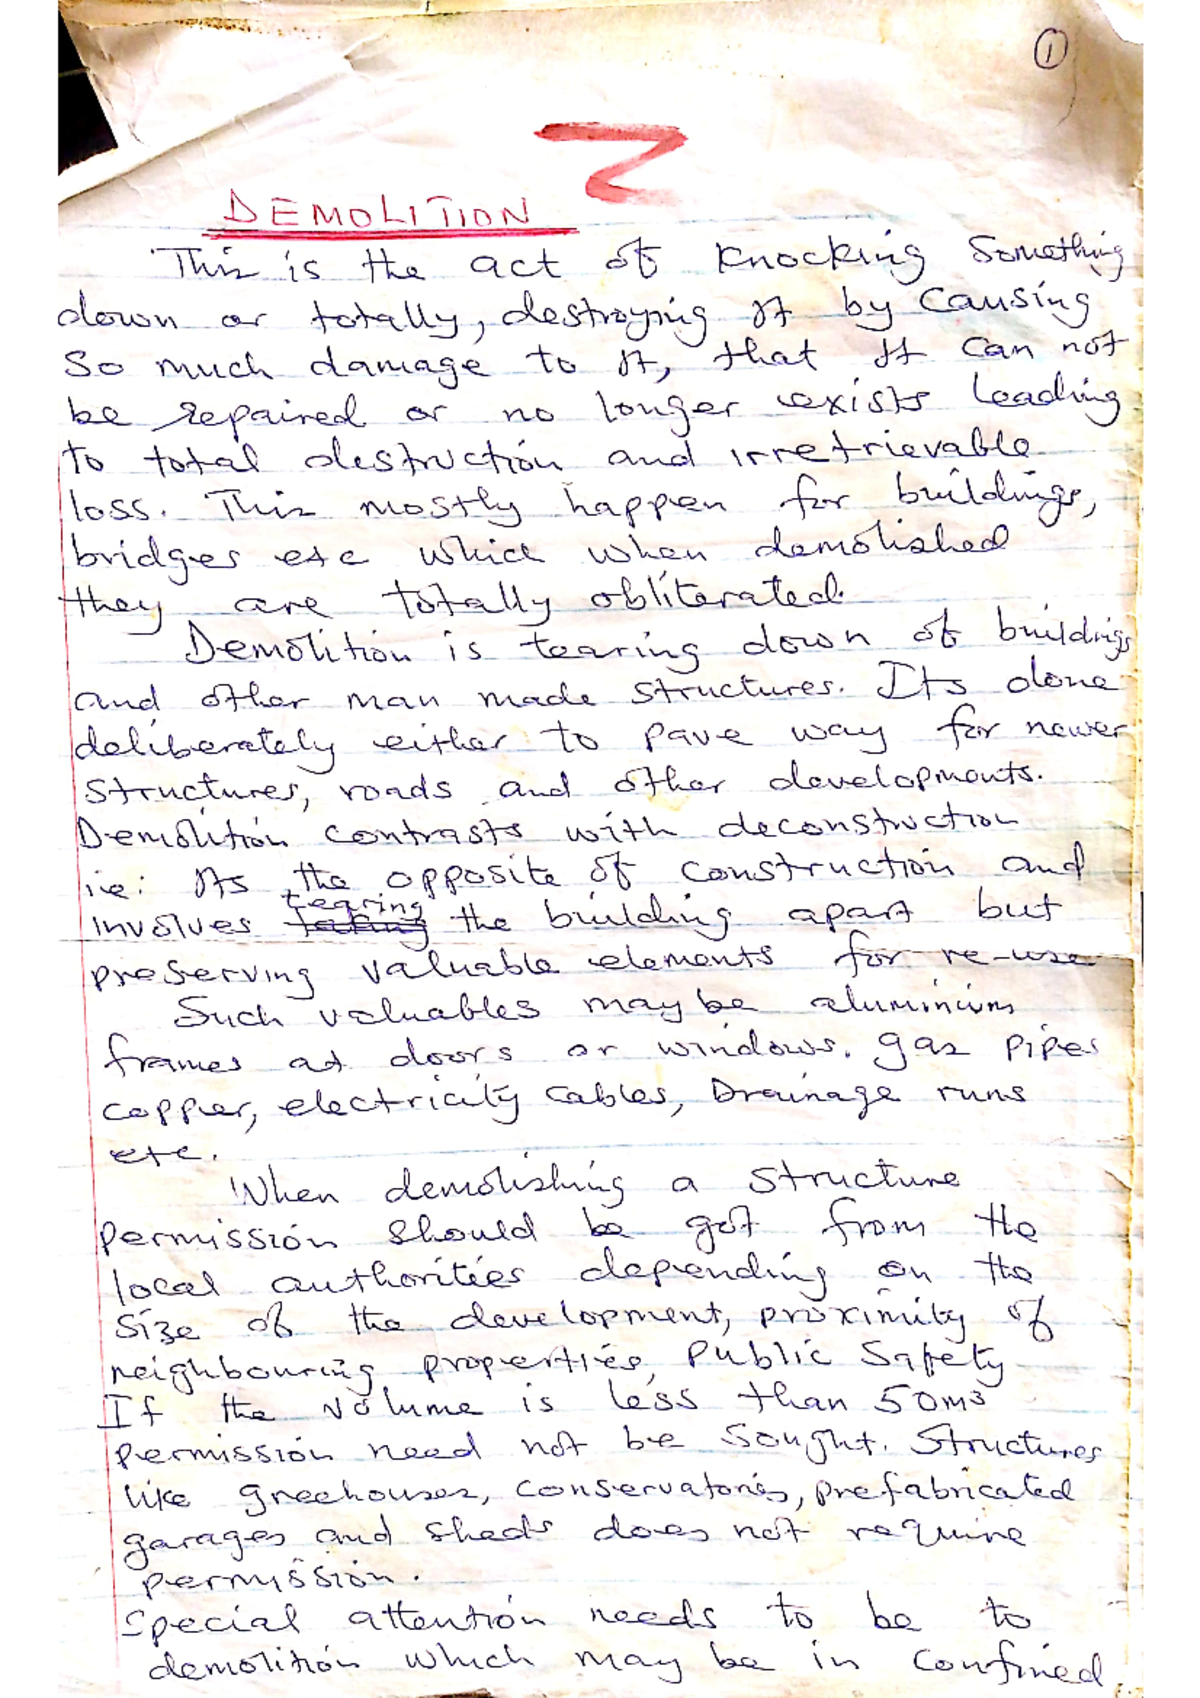 1
Z
DEMOLITION
This is the act of knocking something
down or totally, destroying it by causing
so much damage to it, that it can not
be repaired or no longer exists leading
to total destruction and irretrievable
loss. This mostly happen for buildings,
bridges etc which when demolished
they are totally obliterated.
Demolition is tearing down of buildings
and other man made structures. Its done
deliberately either to pave way for newer
structures, roads and other developments.
Demolition contrasts with deconstruction
ie: As the opposite of construction and
involves tearing the building apart but
preserving valuable elements for re-use
Such valuables may be aluminium
frames at doors or windows. gas pipes
copper, electricity cables, Drainage runs
etc.
When demolishing a structure
permission should be got from the
local authorities depending on the
size of the development, proximity of
neighbouring properties, Public Safety
If the volume is less than 50m3
permission need not be sought. Structures
like greehouses, conservatories, prefabricated
garages and sheds does not require
permission.
Special attention needs to be to
demolition which may be in confined